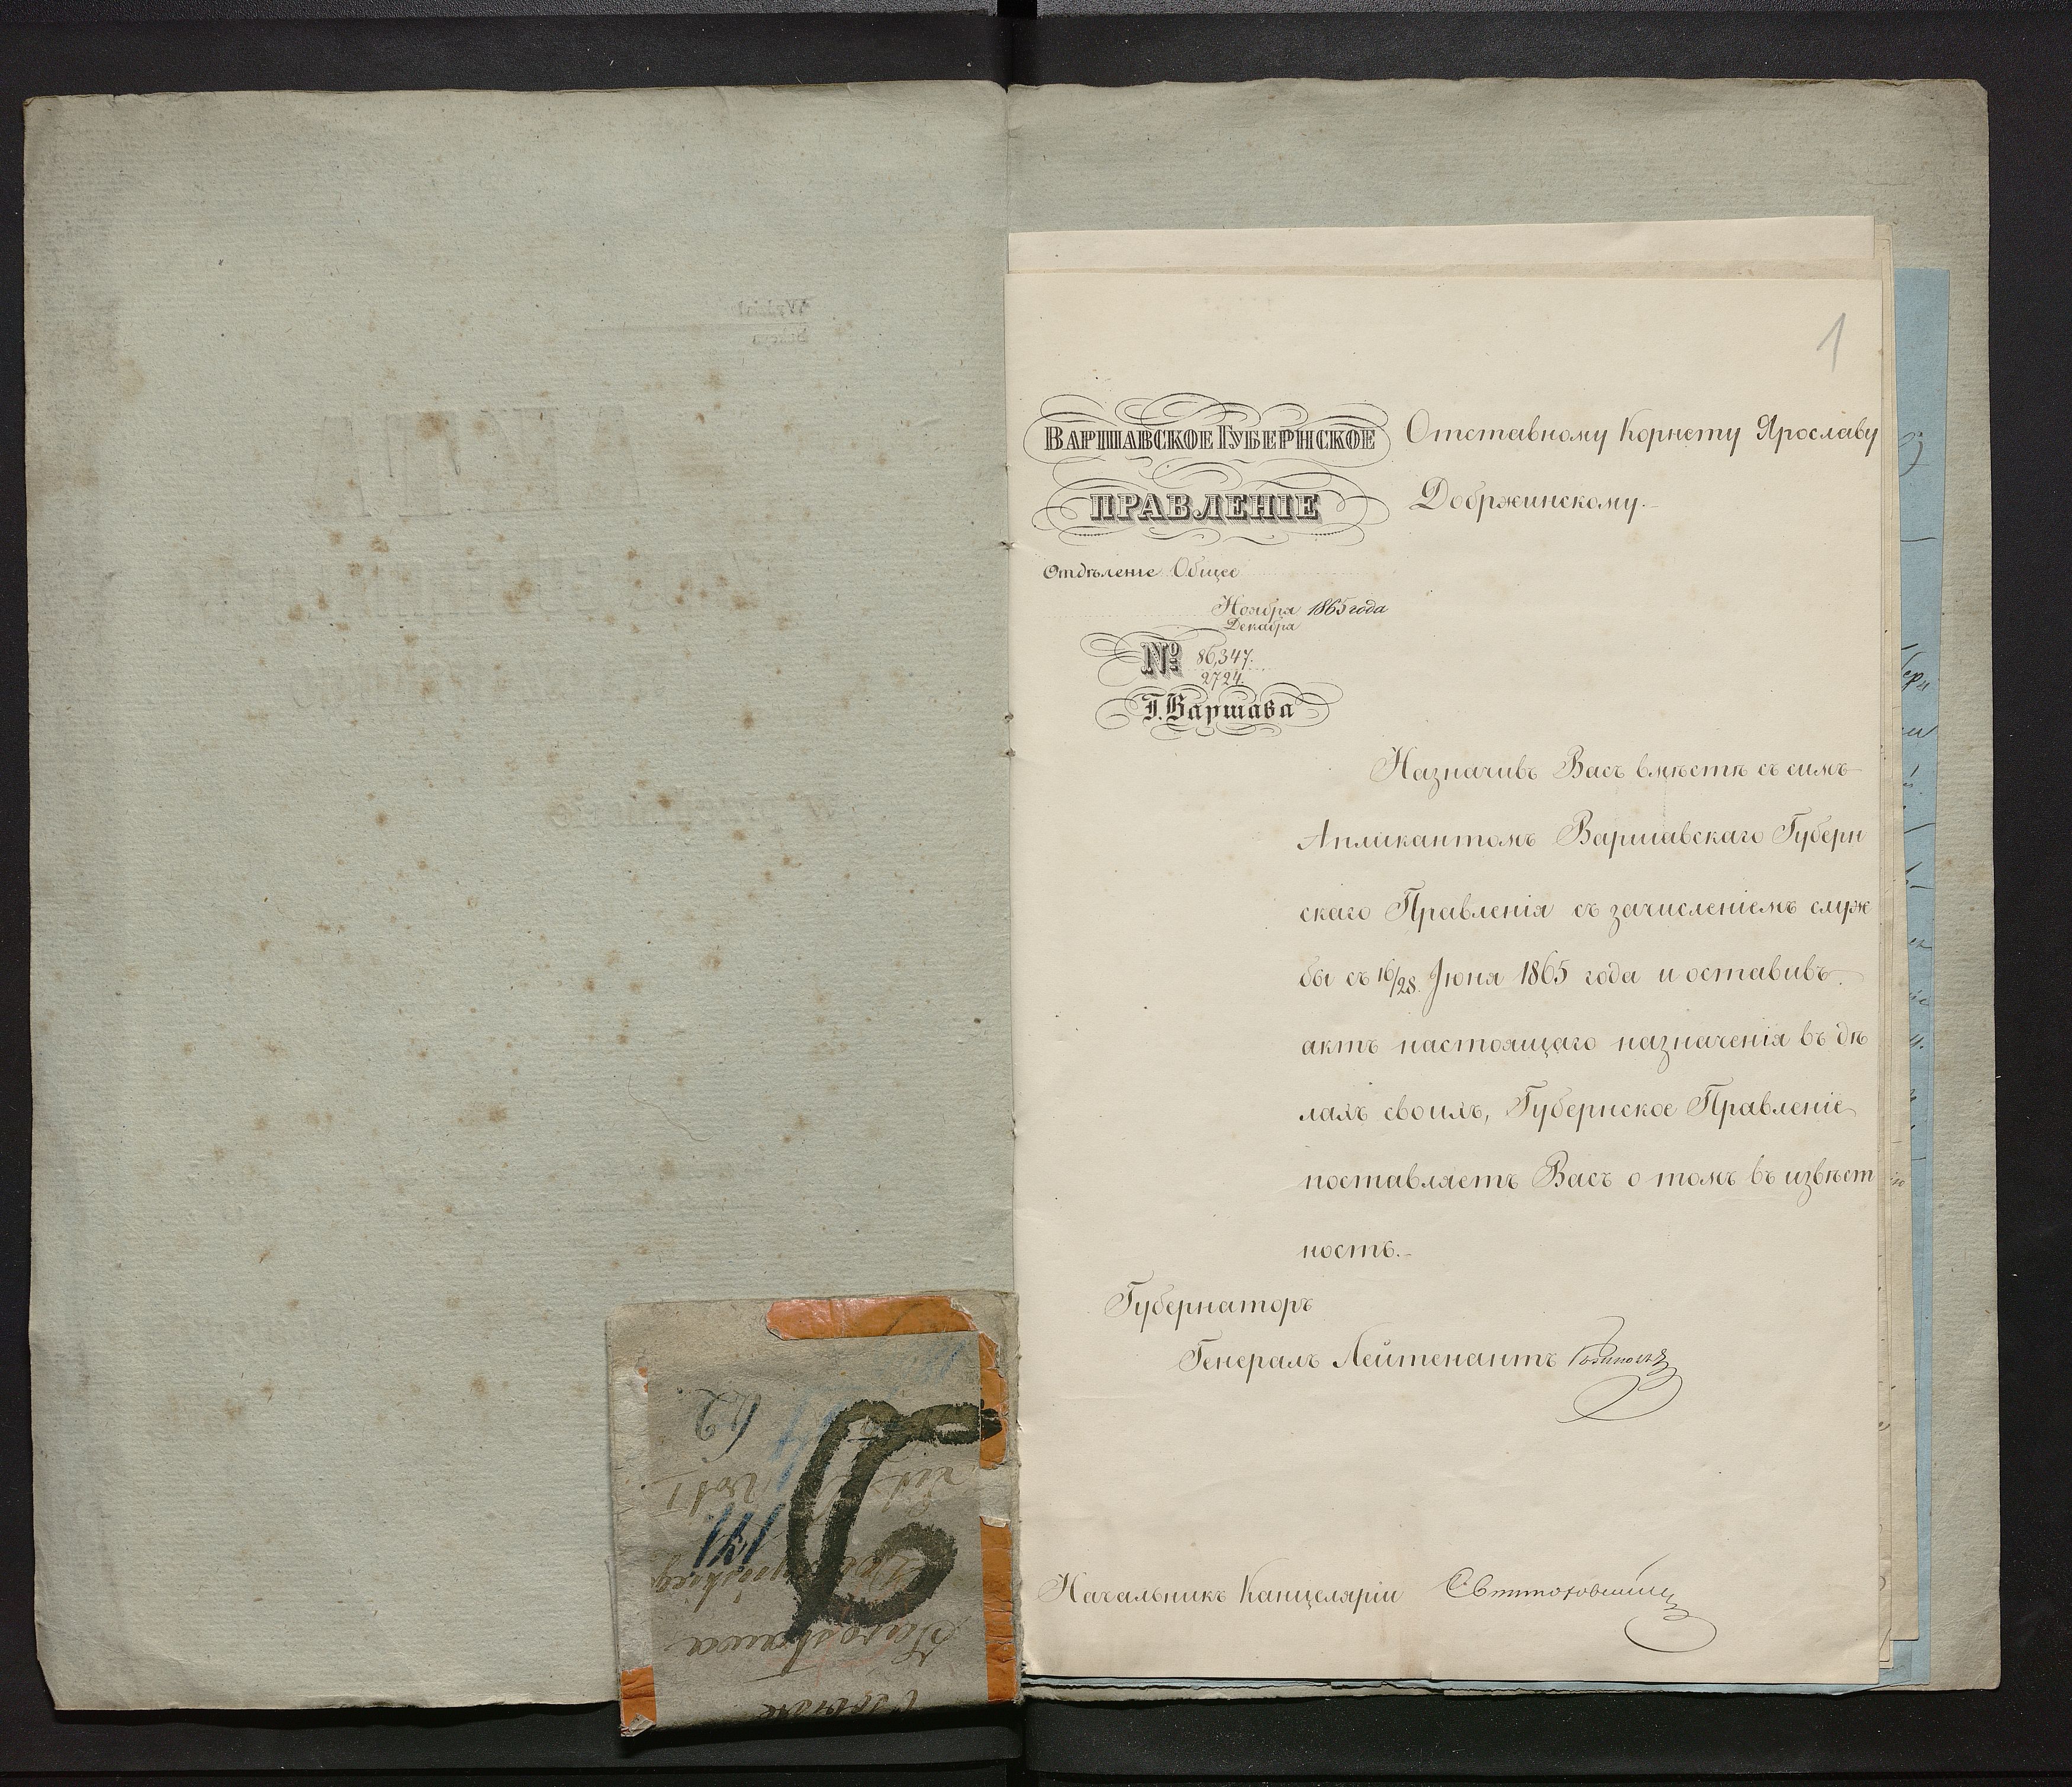 1
ВАРШАВСКОЕ ГУБЕРНСКОЕ
ПРАВЛЕНІЕ
Отдѣленіе Общее
Ноября 1865 года
Декабря
№ 86,347.
2724.
Г. Варшава
Отставному Корнету Ярославу
Добржинскому.
Назначивъ Васъ вмѣстѣ съ симъ
Апликантомъ Варшавскаго Губерн
скаго Правленія съ зачисленіемъ служ
бы съ 16/28 Іюня 1865 года и оставивъ
актъ настоящаго назначенія въ дѣ
лахъ своихъ, Губернское Правленіе
поставляетъ Васъ о томъ въ извѣст
ность.
Губернаторъ
Генералъ Лейтенантъ
Начальникъ Канцеляріи
62
Vol I
171
Jarosława